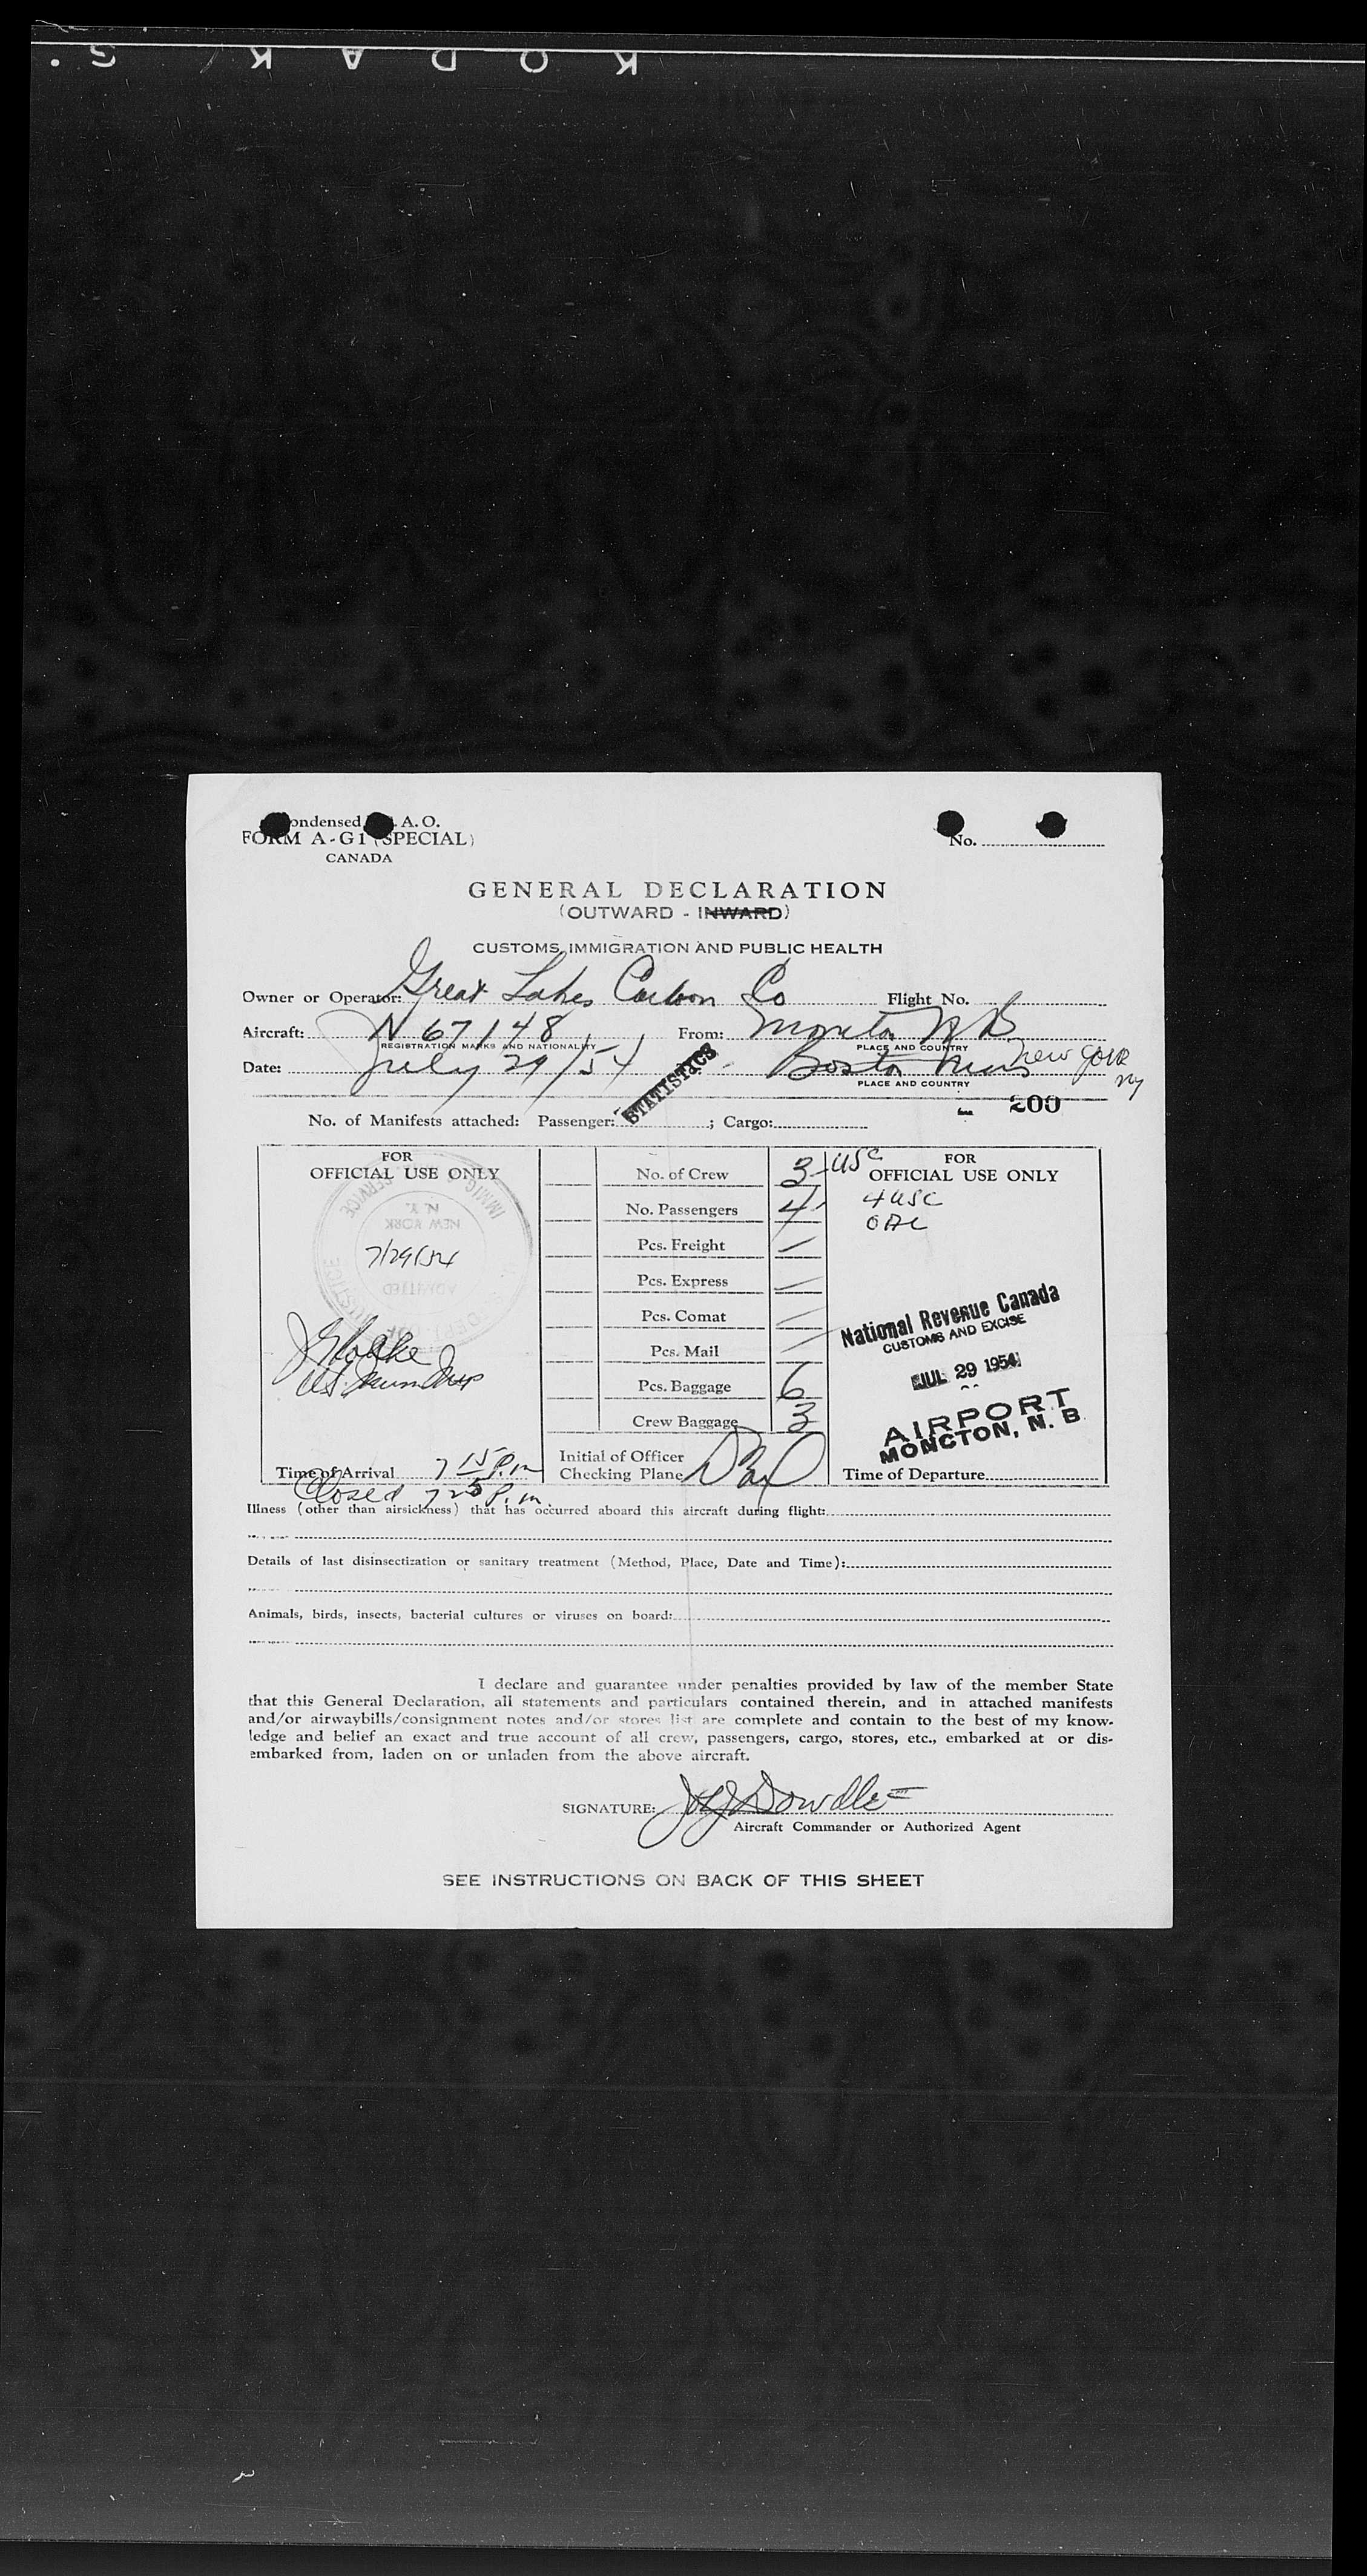 KODAK S.
Condensed I.C.A.O.
FORM A-G1 (SPECIAL)
CANADA
No.
GENERAL DECLARATION
(OUTWARD - INWARD)
CUSTOMS, IMMIGRATION AND PUBLIC HEALTH
Owner or Operator: Great Lakes Carbon Co Flight No.
Aircraft: N 67148 From: Moncton N B
REGISTRATION MARKS AND NATIONALITY PLACE AND COUNTRY
Date: July 29/54 Boston Mass New York
NY
PLACE AND COUNTRY
STATISTICS
200
No. of Manifests attached: Passenger: ; Cargo:
FOR
OFFICIAL USE ONLY
IMMIG SERVICE
N.Y.
NEW YORK
7/29/54
ADMITTED
Time of Arrival 7 15 P.m
Closed 7 25 P.m.
No. of Crew 3 USC
No. Passengers 4
Pcs. Freight —
Pcs. Express —
Pcs. Comat —
Pcs. Mail —
Pcs. Baggage 6
Crew Baggage 3
Initial of Officer
Checking Plane
FOR
OFFICIAL USE ONLY
4 USC
0 AC
National Revenue Canada
CUSTOMS AND EXCISE
JUL 29 1954
AIRPORT
MONCTON, N. B.
Time of Departure
Illness (other than airsickness) that has occurred aboard this aircraft during flight:
Details of last disinsectization or sanitary treatment (Method, Place, Date and Time):
Animals, birds, insects, bacterial cultures or viruses on board:
I declare and guarantee under penalties provided by law of the member State
that this General Declaration, all statements and particulars contained therein, and in attached manifests
and/or airwaybills/consignment notes and/or stores list are complete and contain to the best of my know-
ledge and belief an exact and true account of all crew, passengers, cargo, stores, etc., embarked at or dis-
embarked from, laden on or unladen from the above aircraft.
SIGNATURE: Dowdle
Aircraft Commander or Authorized Agent
SEE INSTRUCTIONS ON BACK OF THIS SHEET